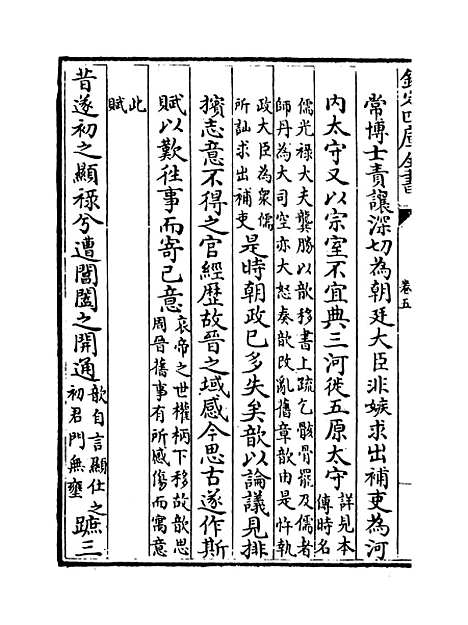 欽定四庫全書
卷五
常博士責讓深切為朝廷大臣非嫉求出補吏為河
内太守又以宗室不宜典三河徙五原太守詳見本傳時名
儒光祿大夫龔勝以歆移書上疏乞骸骨罷及儒者
師丹為大司空亦大怒奏歆改亂舊章歆由是忤執
政大臣為衆儒所訕求出補吏是時朝政已多失矣歆以論議見排
擯志意不得之官經歴故晉之域感今思古遂作斯
賦以歎往事而寄己意哀帝之世權柄下移故歆思周晉舊事有所感傷而寓意
此賦
昔遂初之顯禄兮遭閶闔之開通歆自言顯仕之初君門無壅蹠三